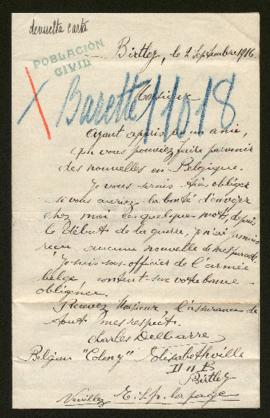 devuelta carta
Birtley, le 2 Septembre 1916
POBLACIÓN
CIVIL
X Barette / 11018
Monsieur
Ayant appris par un ami,
que vous pouviez faire parvenir
des nouvelles en Belgique.
Je vous serais très obligé
si vous auriez la bonté d'envoyer
chez moi quelques mots, depuis
le début de la guerre, je n'ai jamais
reçu aucune nouvelle de
Je suis sous-officier de l'armée
belge comptant sur votre bonne
obligeance.
Recevez Monsieur, l'assurance de
tout mes respect.
Charles Delbarre
Belgian "Colony" Elisabethville
Birtley
Veuillez T.S.P. la page